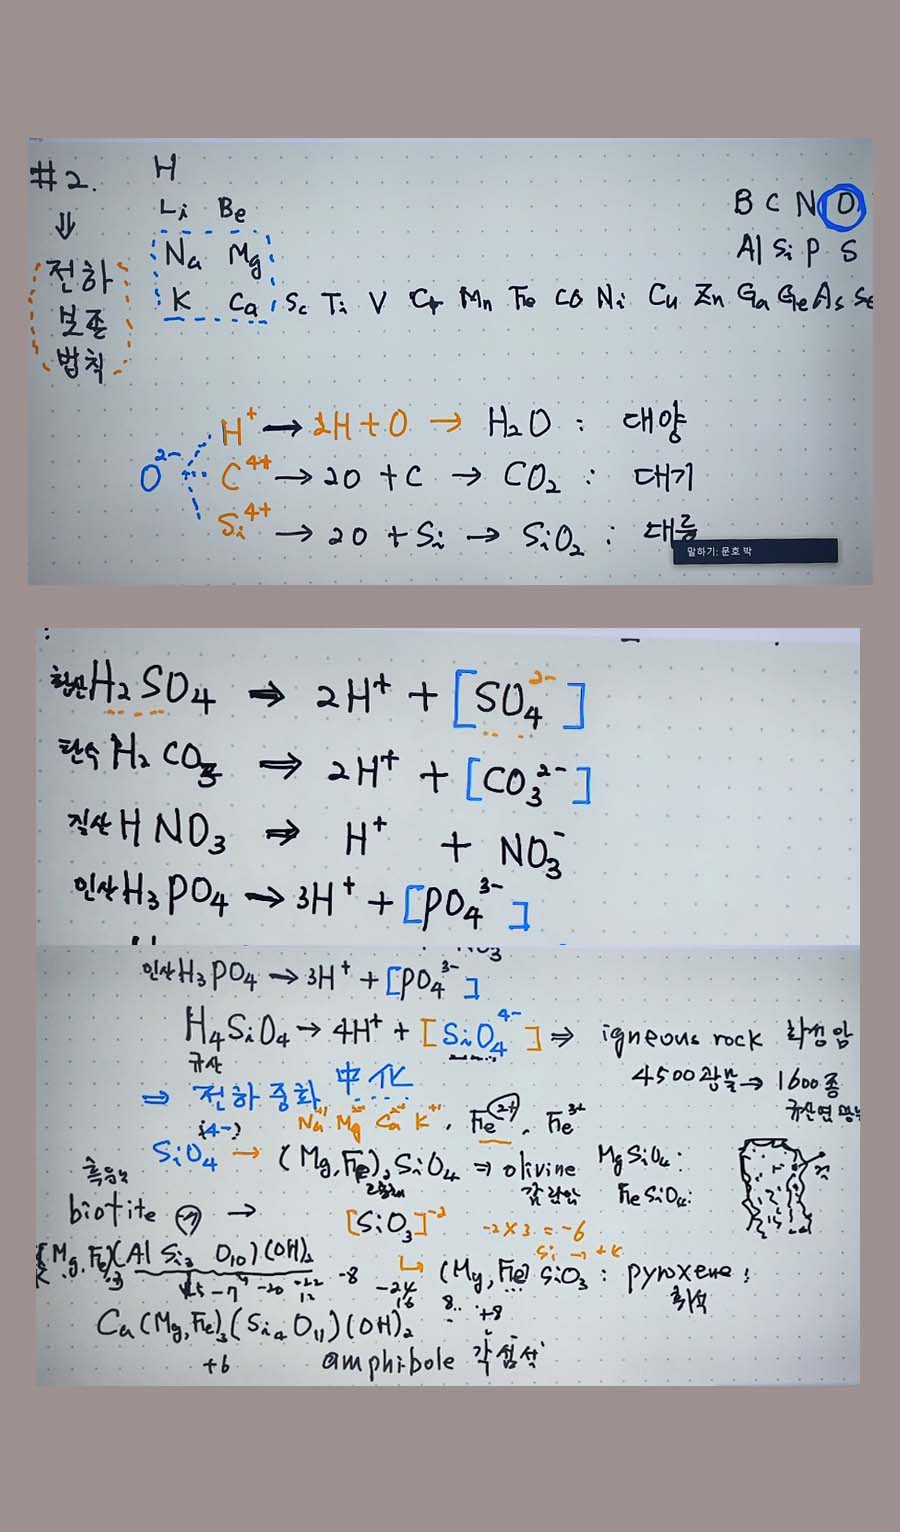 #2.
⇓
전하
보존
법칙
H
Li Be
B C N O
Na Mg
Al Si P S
K Ca Sc Ti V Cr Mn Fe CO Ni Cu Zn Ga Ge As Se
O²⁻
H⁺ → 2H + O → H₂O : 대양
C⁴⁺ → 2O + C → CO₂ : 대기
Si⁴⁺ → 2O + Si → SiO₂ : 대륙
말하기: 문호 박
황산 H₂SO₄ ⇒ 2H⁺ + [SO₄²⁻]
탄산 H₂CO₃ ⇒ 2H⁺ + [CO₃²⁻]
질산 HNO₃ ⇒ H⁺ + NO₃⁻
인산 H₃PO₄ → 3H⁺ + [PO₄³⁻]
인산 H₃PO₄ → 3H⁺ + [PO₄³⁻]
H₄SiO₄ → 4H⁺ + [SiO₄⁴⁻] ⇒ igneous rock 화성암
규산
4500광물 → 1600종
⇒ 전하 중화 中化
규산염 광물
(4-)
Na⁺¹ Mg Ca K⁺¹, Fe²⁺, Fe³⁺
SiO₄ → (Mg,Fe)₂SiO₄ ⇒ olivine MgSiO₄:
감람암 FeSiO₄:
흑운모
biotite → [SiO₃]⁻² -2×3 = -6
K(Mg,Fe)₃(AlSi₃O₁₀)(OH)₂
↳ (Mg,Fe)SiO₃ : pyroxene :
휘석
-7 -20 -22 -8 -24
12 16 8.. +8
Ca(Mg,Fe)₃(Si₄O₁₁)(OH)₂
+6 amphibole 각섬석